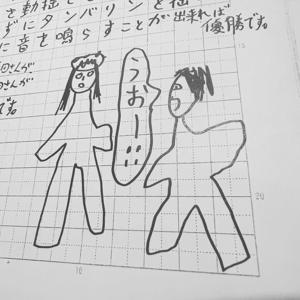 き動揺
ずにタンバリンを揺
に音を鳴らすことが出来れば
優勝です。
さんが
さんが
です。
うおー!!
15
20
10